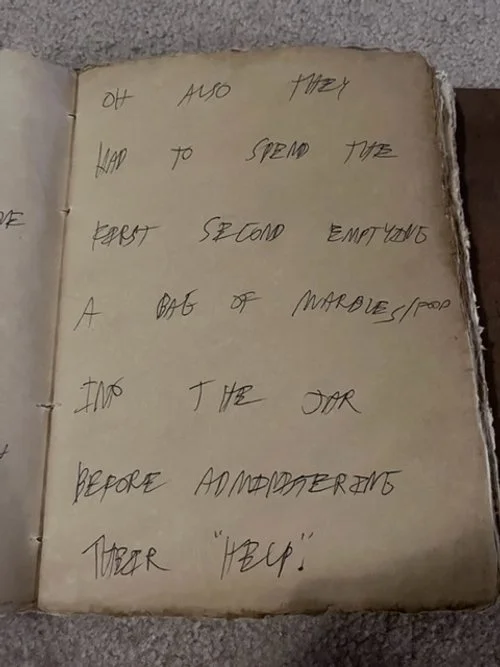 OH ALSO THEY
HAD TO SPEND THE
FIRST SECOND EMPTYING
A BAG OF MARBLES/POOP
INTO THE JAR
BEFORE ADMINISTERING
THEIR "HELP."